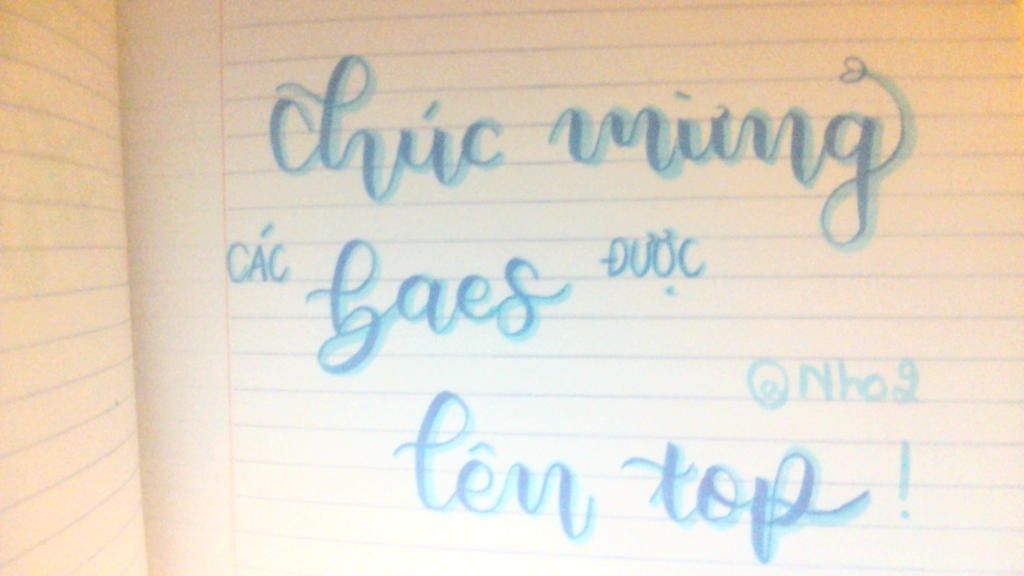 Chúc mừng
CÁC baes ĐƯỢC
@Nho2
lên top!